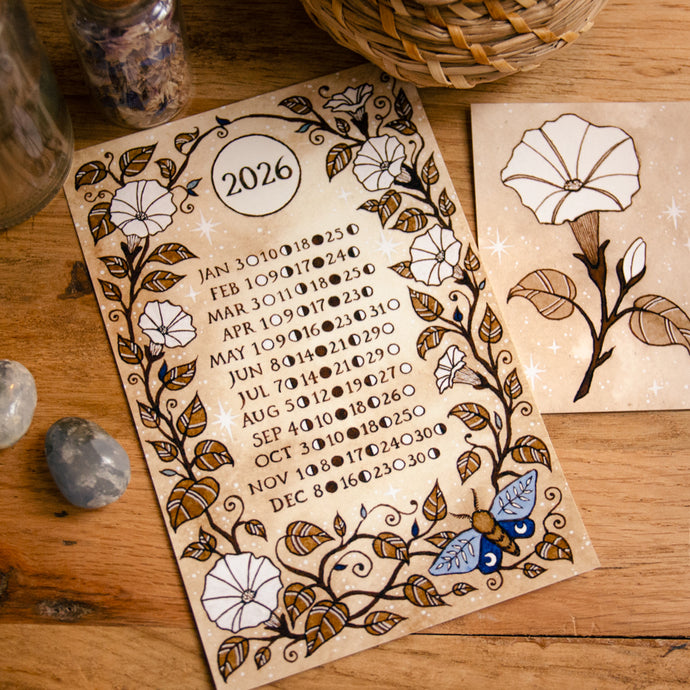 2026
JAN 3○10◑18●25◐
FEB 1○9◑17●24◐
MAR 3○11◑18●25◐
APR 1○9◑17●23◐
MAY 1○9◑16●23◐31○
JUN 8◑14●21◐29○
JUL 7◑14●21◐29○
AUG 5◑12●19◐27○
SEP 4◑10●18◐26○
OCT 3◑10●18◐25○
NOV 1◑8●17◐24○30◑
DEC 8●16◐23○30◑